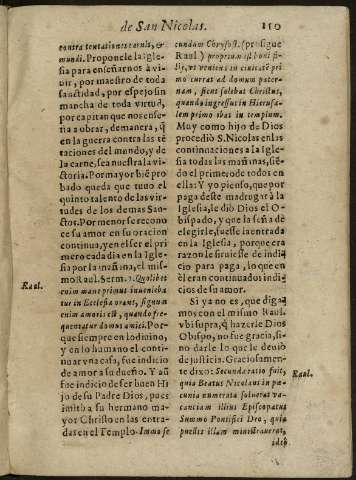 de San Nicolas. 110
contra tentationes carnis, &
mundi. Proponele la igle-
sia para enseñarnos à vi-
uir, por maestro de toda
sanctidad, por espejo sin
mancha de toda virtud,
por capitan que nos ense-
ña a obrar, demanera, q̃
en la guerra contra las tẽ
taciones del mundo, y de
la carne, sea nuestra la vi-
ctoria. Por mayor biẽ pro
bado queda que tuuo el
quinto talento de las vir-
tudes de los demas San-
ctos. Por menor se recono
ce su amor en su oracion
continua, y en el ser el pri-
mero cada dia en la Igle-
sia por la mañana, el mis-
mo Raul. Serm. 1. Quotidie
Raul.
enim mane primus inuenieba
tur in Ecclesia orans, signum
enim amoris est, quando fre-
quentatur domus amici. Por-
que siempre en lo diuino,
y en lo humano el conti-
nuar vna casa, fue indicio
de amor a su dueño. Y aũ
fue indicio de ser buen Hi
jo de su Padre Dios, pues
imitò a su hermano ma-
yor Christo en las entra-
das en el Templo. Immo se
cundum Chrysost. (prosigue
Raul.) proprium est boni fi-
lij, vt veniens in ciuitatẽ pri
mo currat ad domum pater-
nam, sicut solebat Christus,
quando ingressus in Hierusa-
lem primo ibat in templum.
Muy como hijo de Dios
procediò S. Nicolas en las
continuaciones a la Igle-
sia todas las mañanas, siẽ-
do el primero de todos en
ella: Y yo pienso, que por
paga deste madrugar à la
Iglesia, le diò Dios el O-
bispado, y que la seña de
elegirle, fuesse la entrada
en la Iglesia, porque era
razon le siruiesse de indi-
cio para paga, lo que en
èl eran continuados indi-
cios de su amor.
Si ya no es, que diga-
mos con el mismo Raul.
vbi supra, q̃ hazerle Dios
Obispo, no fue gracia, si-
no darle lo que le deuiò
de justicia. Graciosamen-
te dixo: Secunda ratio fuit,
Raul.
quia Beatus Nicolaus in pe-
cunia numerata soluerat va-
cantiam illius Episcopatus
Summo Pontifici Deo, quia
puellis illam ministrauerat,
ideo